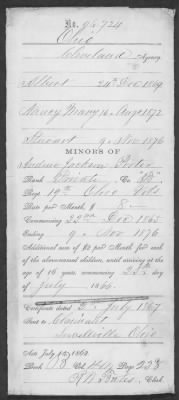 No. 96724
Ohio
Cleveland Agency
Albert 24th Dec 1869
Nancy Mary 16 Aug 1872
Stewart 9 Nov 1876
MINORS OF
Andrew Jackson
Rank Private Co. "B"
Regt 19th Ohio Vols
Rate per Month, $ 8—
Commencing 22nd Dec 1865
Ending 9 Nov 1876
Additional sum of $2 per Month for each
of the abovenamed children, until arriving at the
age of 16 years, commencing 25th day
of July 1866.
Certificate dated 2 July 1867
Sent to Claimant
Ohio
Act July 14, 1862
Book Vol. Page 228
Clerk